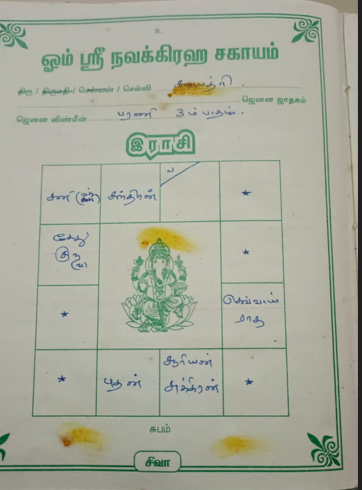 உ
ஓம் ஸ்ரீ நவக்கிரஹ சகாயம்
திரு / திருமதி / செல்வன் / செல்வி காயத்ரி .
ஜெனன ஜாதகம்
ஜெனன விண்மீன் பரணி 3ம் பாதம் .
இராசி
சனி சந்திரன் ல
கேது குரு (வ)
செவ்வாய்
ராகு
புதன் சூரியன் சுக்கிரன்
சுபம்
சிவா